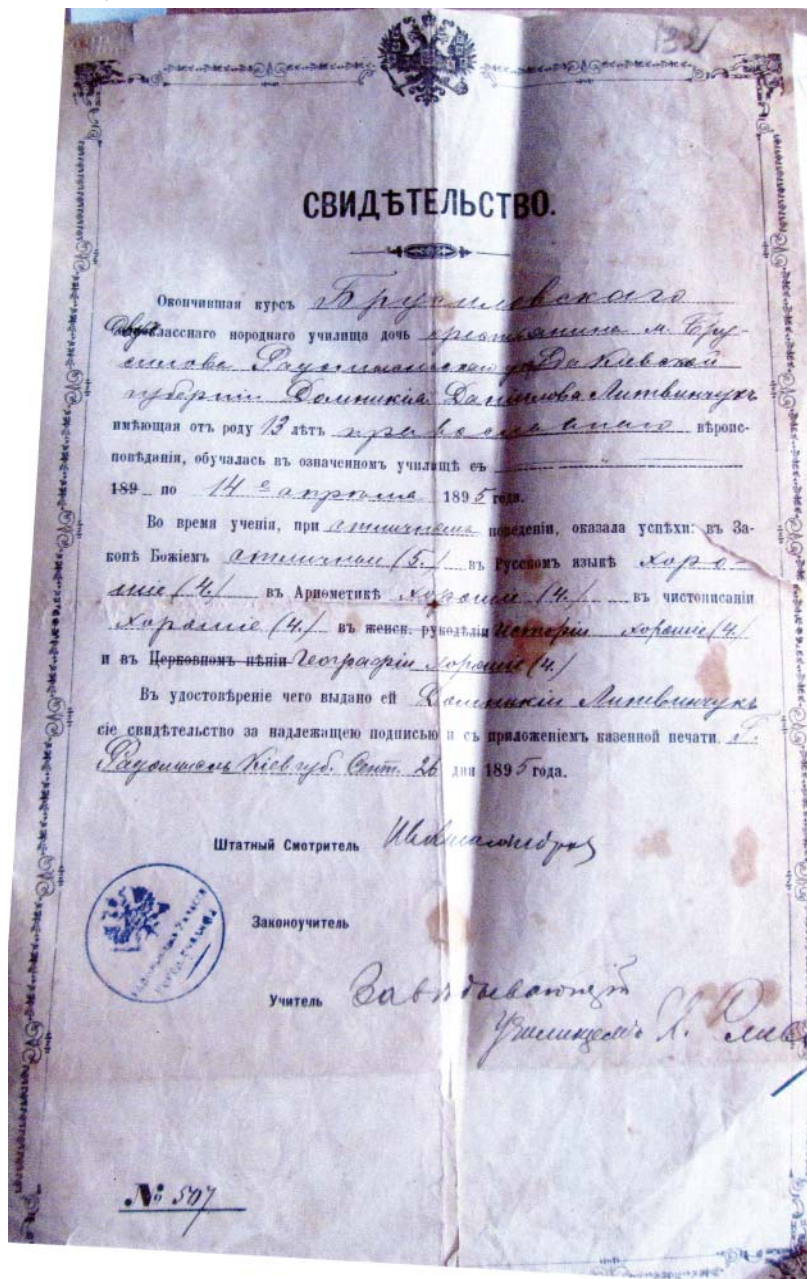 132
СВИДѢТЕЛЬСТВО.
Окончившая курсъ Брусиловскаго
Двухкласснаго народнаго училища дочь крестьянина м. Бру-
силова Радомысльскаго уѣзда Кіевской
губерніи Домникія Данилова Литвинчукъ
имѣющая отъ роду 13 лѣтъ православнаго вѣроис-
повѣданія, обучалась въ означенномъ училищѣ съ
189 по 14е апрѣля 1895 года.
Во время ученія, при отличномъ поведеніи, оказала успѣхи: въ За-
конѣ Божіемъ отличные (5.) въ Русскомъ языкѣ хоро-
шіе (4.) въ Ариѳметикѣ хорошіе (4.) въ чистописаніи
хорошіе (4.) въ женск. рукодѣліи Исторіи хорошіе (4.)
и въ Церковномъ пѣніи Географіи хорошіе (4.)
Въ удостовѣреніе чего выдано ей Домникіи Литвинчукъ
сіе свидѣтельство за надлежащею подписью и съ приложеніемъ казенной печати. Г.
Радомысль Кіев. губ. Сент. 26 дня 1895 года.
Штатный Смотритель
Законоучитель
Учитель Завѣдывающій
Училищемъ
№ 507